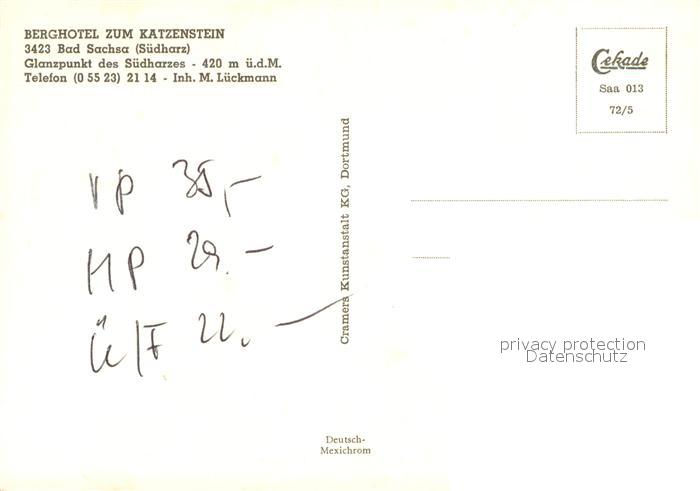 BERGHOTEL ZUM KATZENSTEIN
3423 Bad Sachsa (Südharz)
Glanzpunkt des Südharzes - 420 m ü.d.M.
Telefon (0 55 23) 21 14 - Inh. M. Lückmann
Cekade
Saa 013
72/5
VP 35,-
HP 29.-
Ü/F 22.-
Cramers Kunstanstalt KG, Dortmund
privacy protection
Datenschutz
Deutsch-
Mexichrom